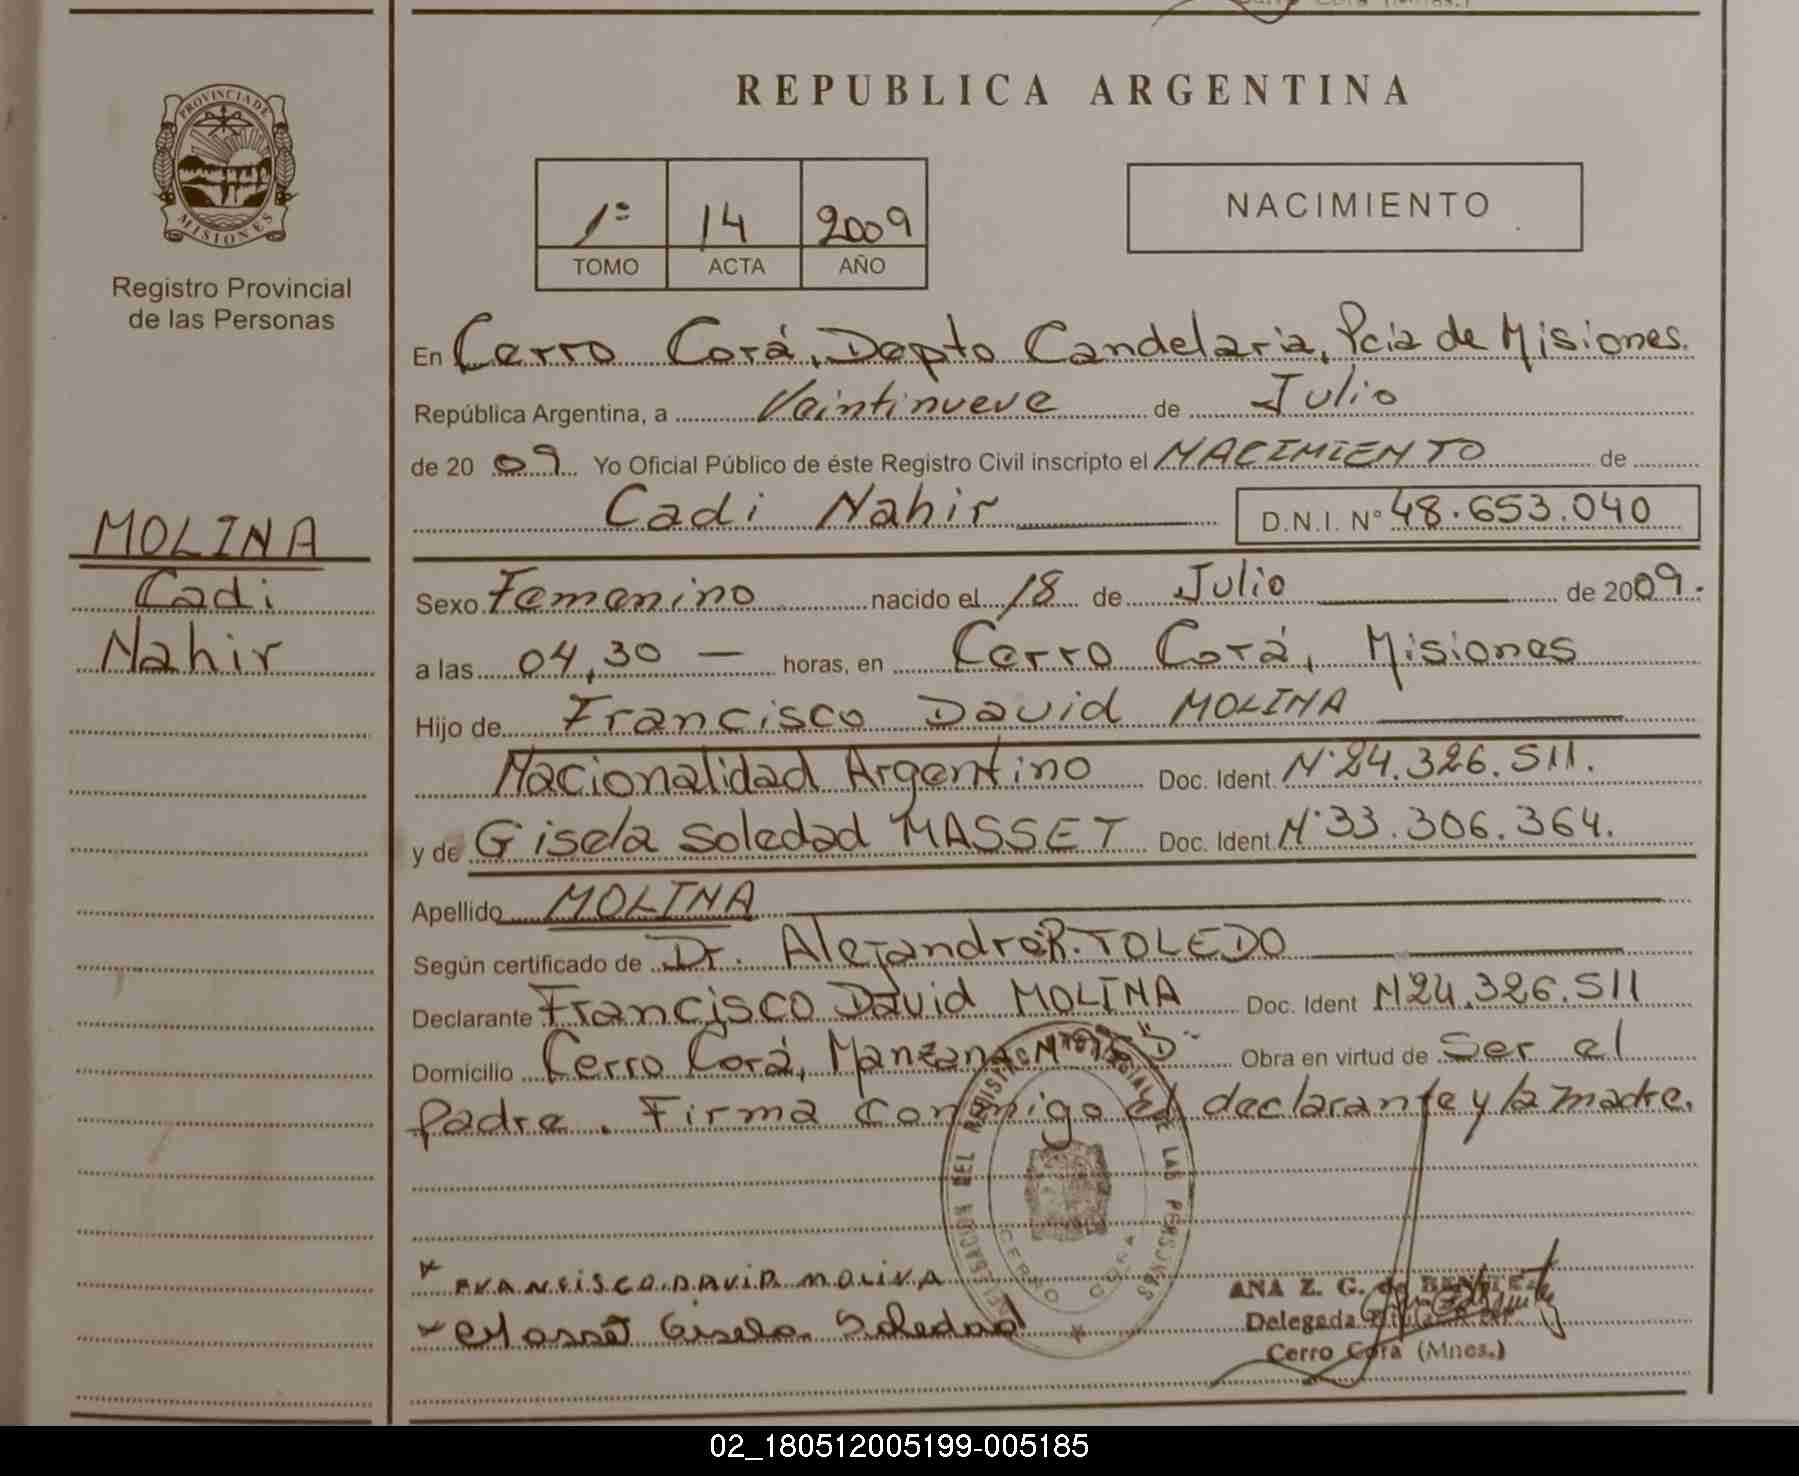 REPUBLICA ARGENTINA
PROVINCIA DE
MISIONES
Registro Provincial
de las Personas
1º 14 2009
TOMO ACTA AÑO
NACIMIENTO
En Cerro Corá, Depto Candelaria, Pcia de Misiones.
República Argentina, a Veintinueve de Julio
de 20 09 Yo Oficial Público de éste Registro Civil inscripto el NACIMIENTO de
Cadi Nahir D.N.I. Nº 48.653.040
MOLINA
Cadi
Nahir
Sexo Femenino nacido el 18 de Julio de 2009.
a las 04,30 — horas, en Cerro Corá, Misiones
Hijo de Francisco David MOLINA
Nacionalidad Argentino Doc. Ident. Nº24.326.511.
y de Gisela Soledad MASSET Doc. Ident. Nº33.306.364.
Apellido MOLINA
Según certificado de Dr. Alejandro R. TOLEDO
Declarante Francisco David MOLINA Doc. Ident Nº24.326.511
Domicilio Cerro Corá, Manzana "D" Obra en virtud de Ser el
padre. Firma conmigo el declarante y la madre.
DEL REGISTRO DE LAS PERSONAS
CERRO CORA
FRANSISCO DAVID MOLINA
Masset Gisela Soledad
ANA Z. G. de BENITEZ
Delegada Titular
Cerro Cora (Mnes.)
02_180512005199-005185